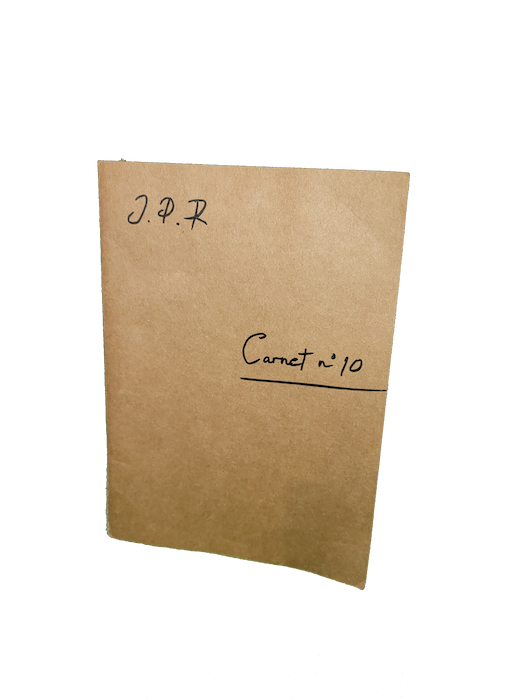 J.P.R
Carnet n°10